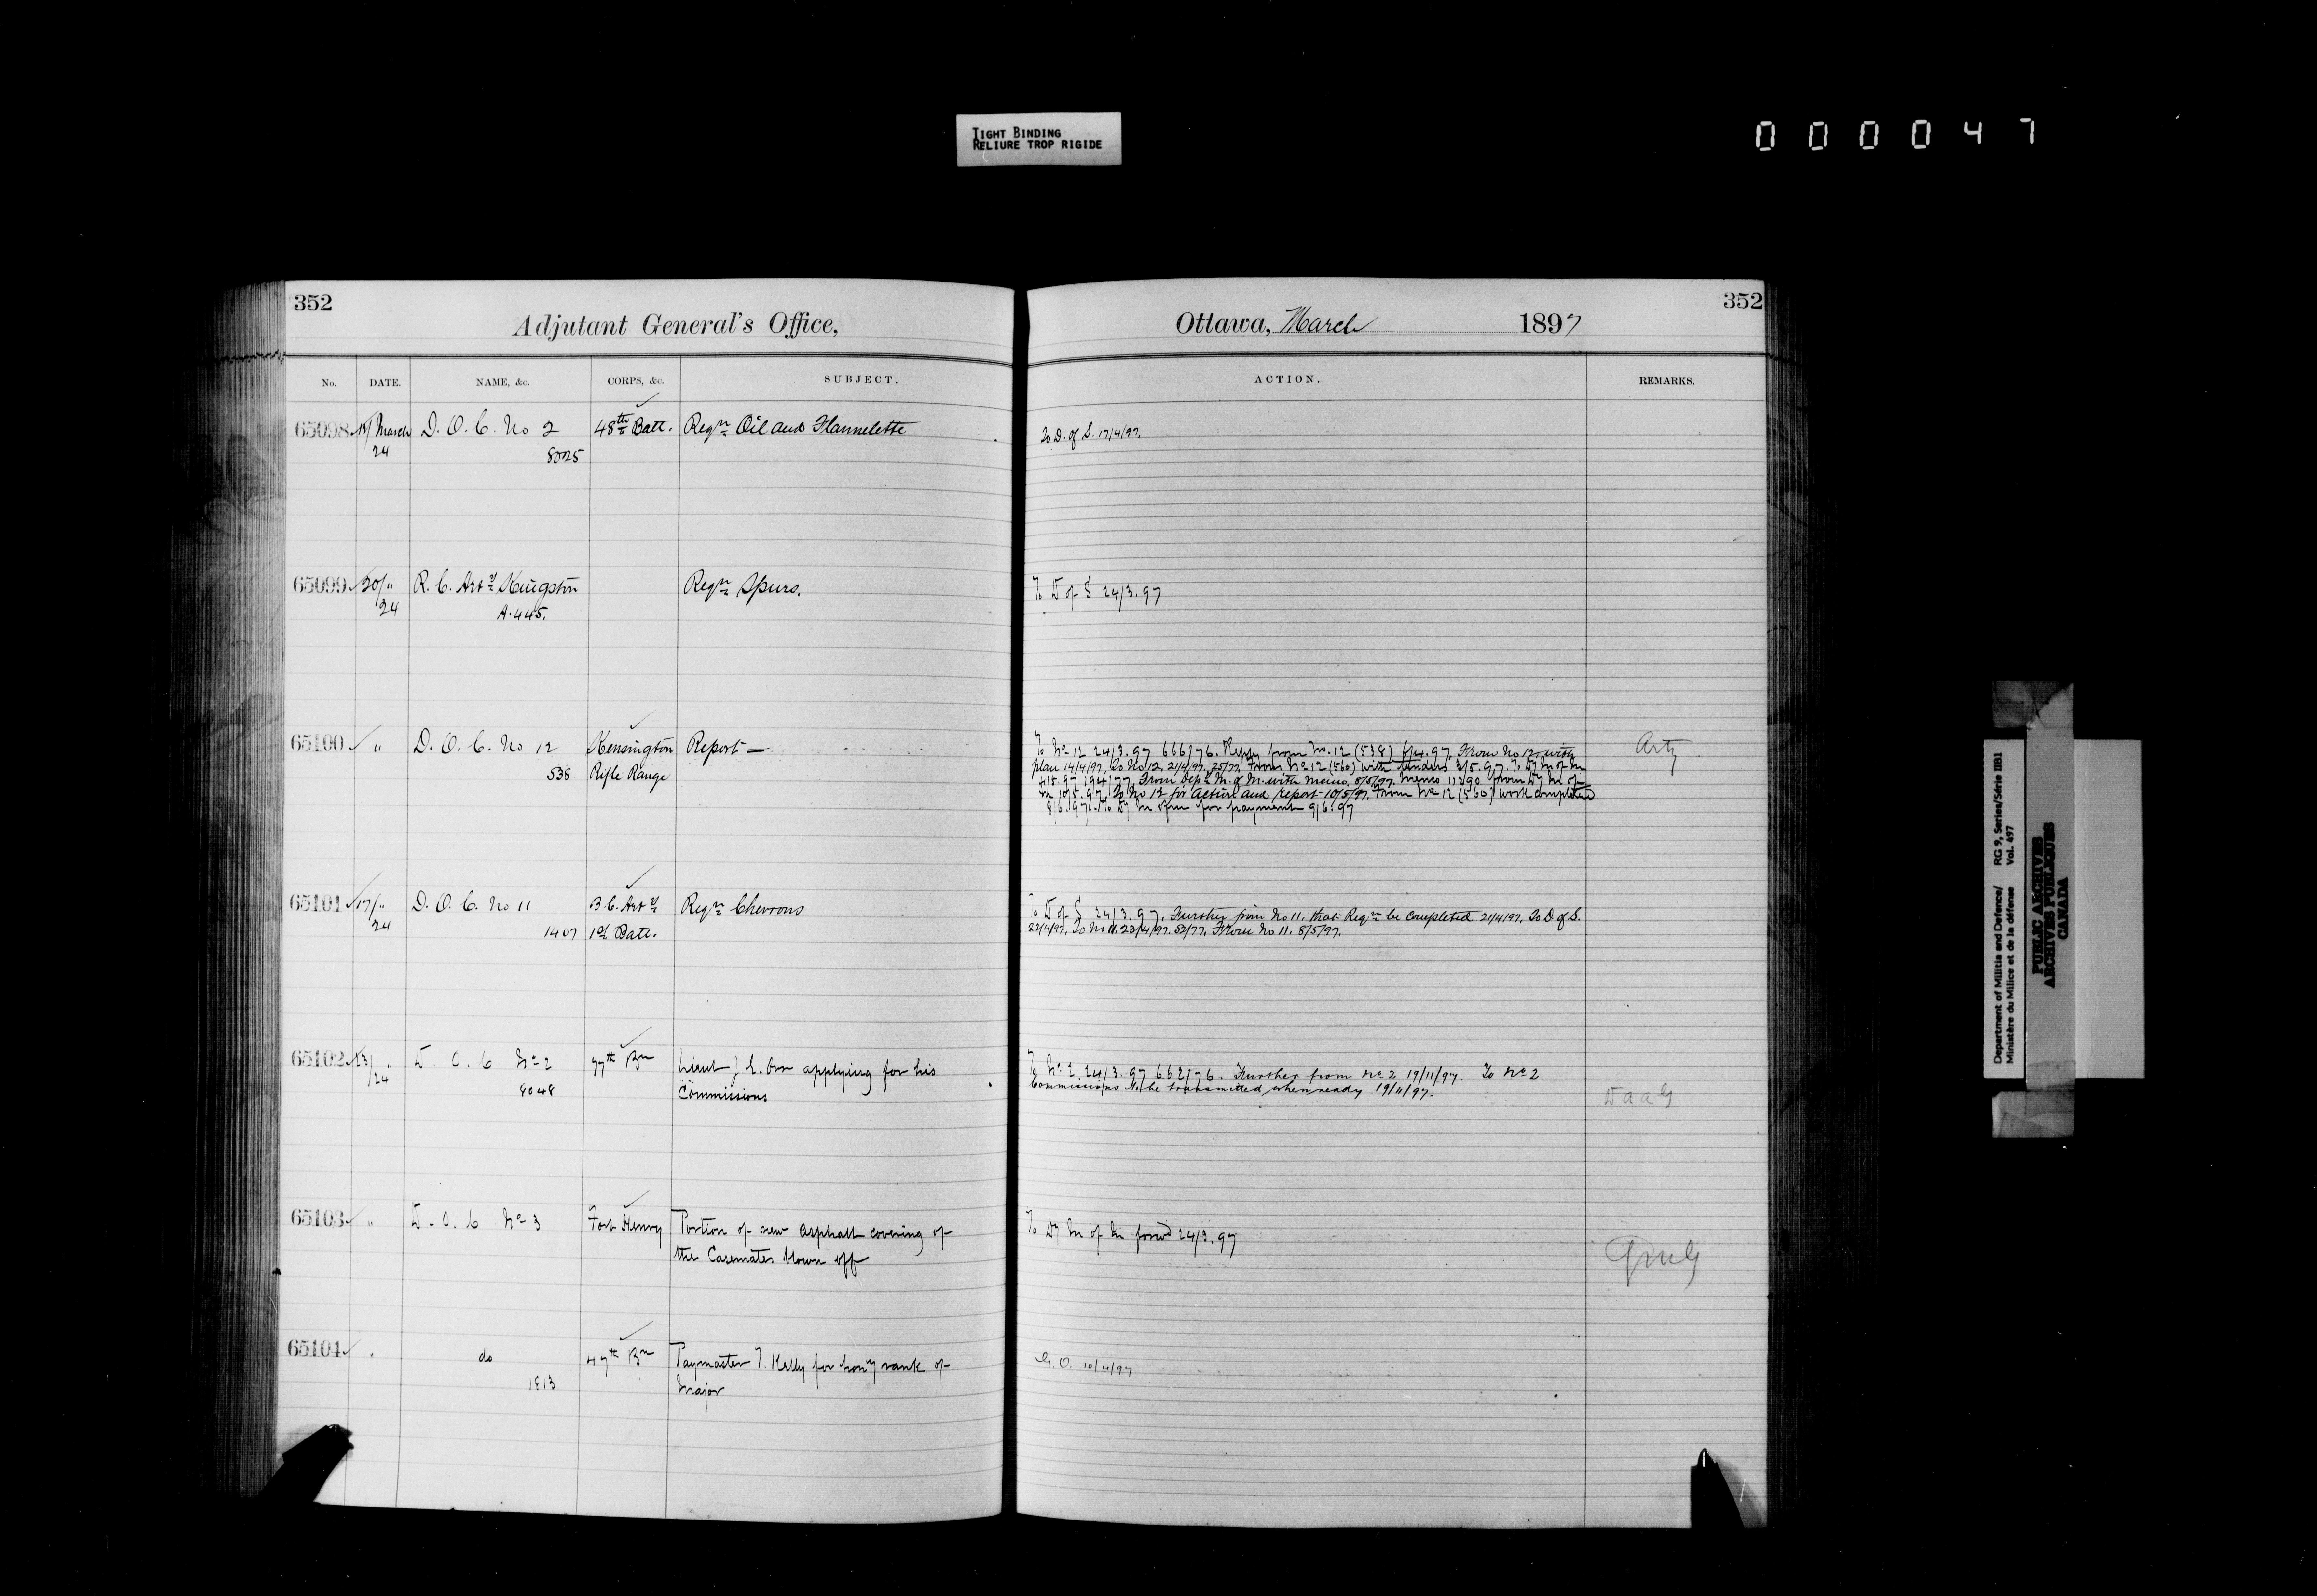 TIGHT BINDING
RELIURE TROP RIGIDE
000047
352
Adjutant General's Office,
Ottawa, March 1897
352
No. DATE. NAME, &c. CORPS, &c. SUBJECT. ACTION. REMARKS.
65098 18/ March D. O. C. No 2 48th Batt. Reqn Oil and Flannelette To D. of S. 17/4/97.
24 8025
65099 20/ " R. C. Arty Kingston Reqn Spurs. To D of S 24/3.97
24 A.445.
65100 " D. O. C. No 12 Kensington Report — To No 12 24/3.97 666/76. Reply from No. 12 (538) 6/4.97. From No 12, with Arty
538 Rifle Range plan 14/4/97. To No 12. 21/4/97. 25/77. From No 12 (560) with tenders 3/5.97. To Dy M of M
4/5.97 194/77. From Depy M. of M. with memo. 8/5/97. Memo 11290 from Dy M of
M 10/5.97. To No 12 for action and report - 10/5/97. From No 12 (560) work completed
8/6.97. To Dy M of M for payment 9/6.97
65101 17/ " D. O. C. No 11 B C. Arty Reqn Chevrons To D of S 24/3.97. Further from No 11. that Reqn be completed 21/4/97. To D of S.
24 1407 1st Batt. 22/4/97. To No 11. 23/4/97. 52/77. From No 11. 8/5/97.
65102 23/ " D. O. C No 2 77th Bn Lieut J. E. Orr applying for his To No 2. 24/3.97 662/76. Further from No 2 19/11/97. To No 2
24 8048 Commissions Commissions to be transmitted when ready 19/11/97. D a a G
65103 " D. O. C No 3 Fort Henry Portion of new asphalt covering of To Dy M of M forwd 24/3.97
the Casemates blown off QMG
65104 " do 47th Bn Paymaster T. Kelly for hony rank of G. O. 10/4/97
1813 Major
Department of Militia and Defence/ RG 9, Series/Série IIB1
Ministère du Milice et de la défense Vol. 497
PUBLIC ARCHIVES
ARCHIVES PUBLIQUES
CANADA